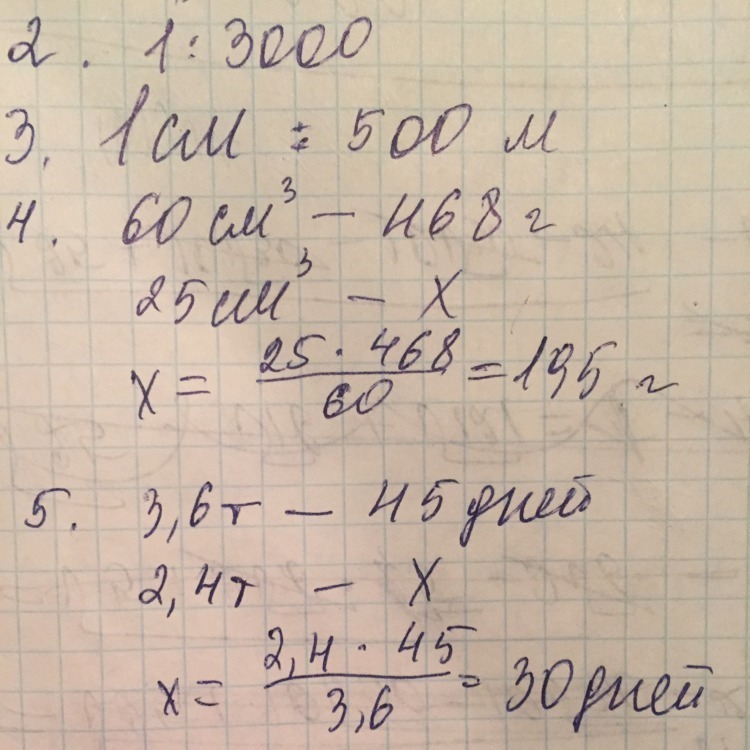 2. 1:3000
3. 1 см : 500 м
4. 60 см³ — 468 г
25 см³ — x
x = 25 · 468 / 60 = 195 г
5. 3,6 т — 45 дней
2,4 т — x
x = 2,4 · 45 / 3,6 = 30 дней